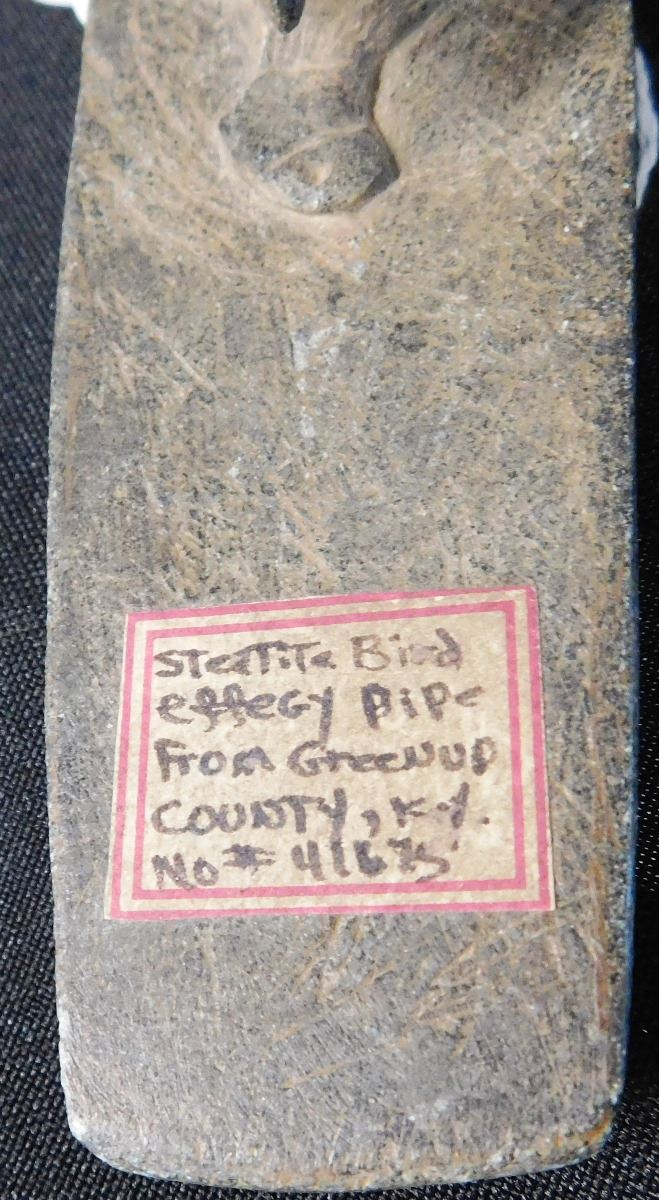 SteaTiTe Bird
effeGy PiPe
From GreeNUP
COUNTY, K.y.
No # 41675